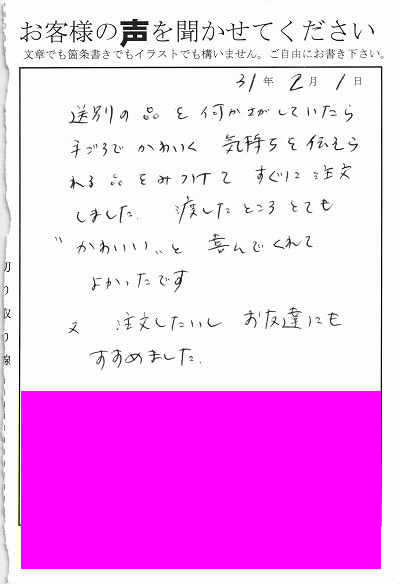 お客様の声を聞かせてください
文章でも箇条書きでもイラストでも構いません。ご自由にお書き下さい。
31年 2月 1日
送別の品を何かさがしていたら
手ごろで かわいく 気持ちを伝えら
れる品をみつけて すぐに注文
しました. 渡したところ とても
"かわいい"と 喜んでくれて
よかったです
又 注文したいし お友達にも
すすめました.
切り取り線